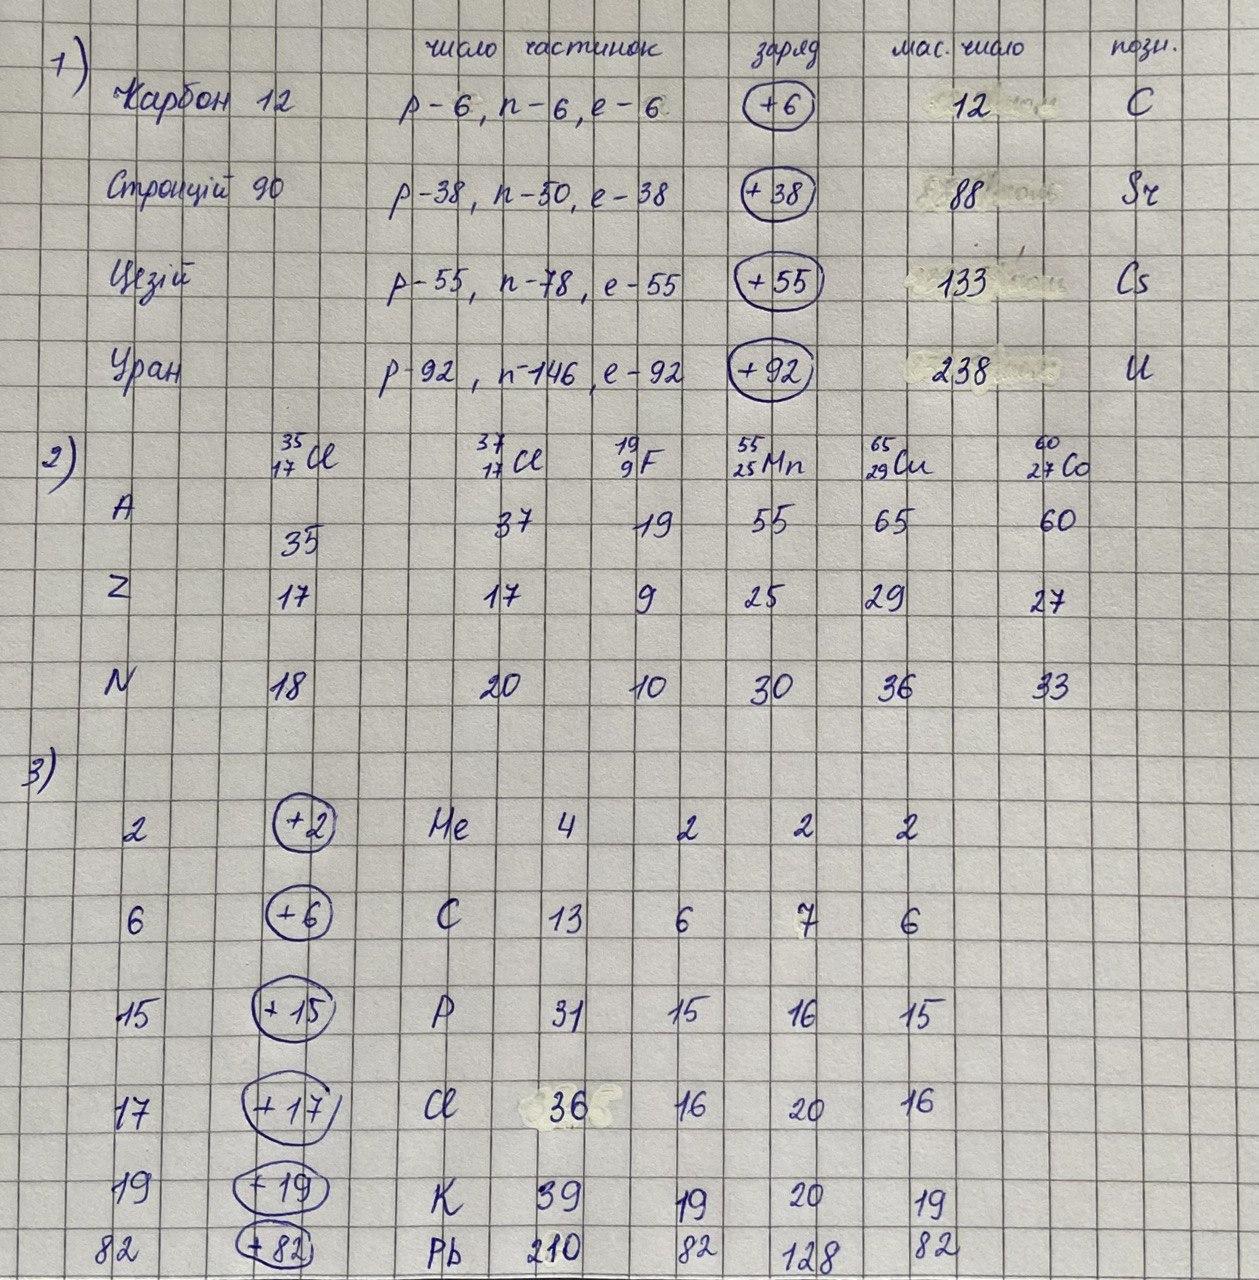 1) число частинок заряд мас. число позн.
Карбон 12 p-6, n-6, e-6 +6 12 C
Стронцій 90 p-38, n-50, e-38 +38 88 Sr
Цезій p-55, n-78, e-55 +55 133 Cs
Уран p-92, n-146, e-92 +92 238 U
2) ³⁵₁₇Cl ³⁷₁₇Cl ¹⁹₉F ⁵⁵₂₅Mn ⁶⁵₂₉Cu ⁶⁰₂₇Co
A 35 37 19 55 65 60
Z 17 17 9 25 29 27
N 18 20 10 30 36 33
3)
2 +2 He 4 2 2 2
6 +6 C 13 6 7 6
15 +15 P 31 15 16 15
17 +17 Cl 36 16 20 16
19 +19 K 39 19 20 19
82 +82 Pb 210 82 128 82